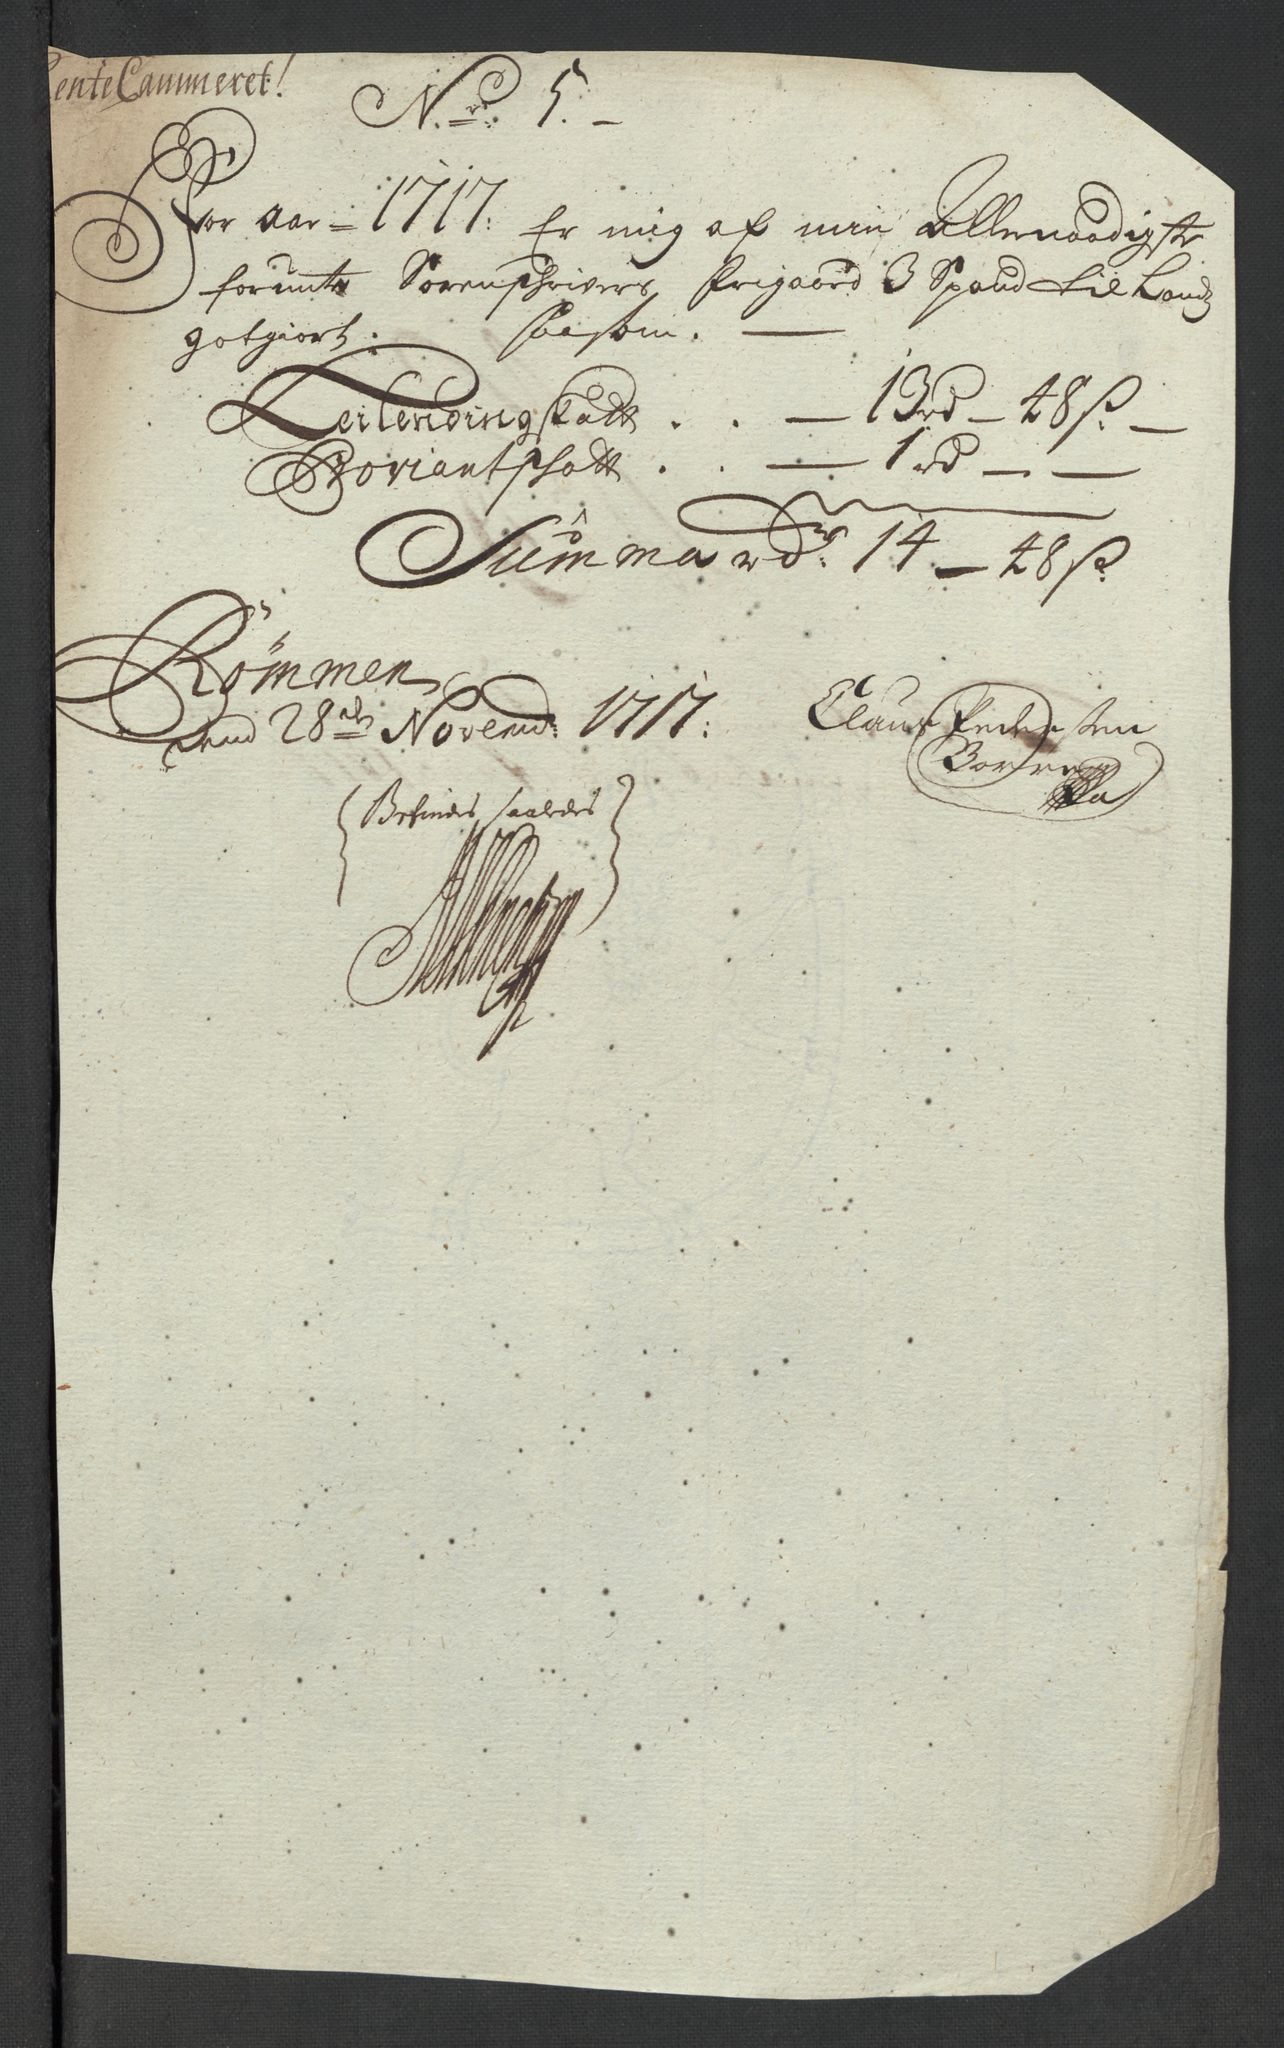 Rente Cammeret!
No. 5.
For aar 1717. Er mig af min Allernaadigste
forunte Sorenschrivers frigaard 3 Spand til Lands
gotgiort. saasom.
Leilendingskatt . . 13 rd 48 s.
Proviantschatt . . 1 rd
Summa rdr. 14 48 s.
Rømmen
end 28de Novemb: 1717: Claus Pedersten
Befindes saaledes